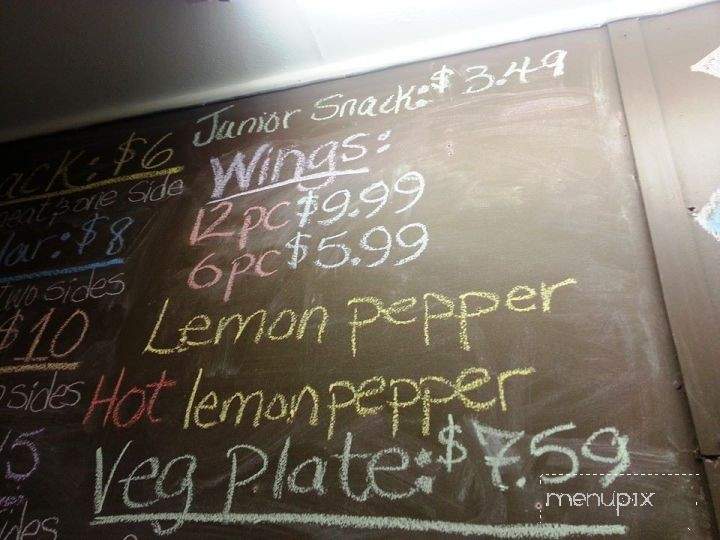 Junior Snack: $3.49
Wings:
12pc $9.99
6pc $5.99
Lemon pepper
Hot lemon pepper
Veg Plate: $7.59
ack: $6
one side
lar: $8
Two sides
$10
sides
5
ides
menupix